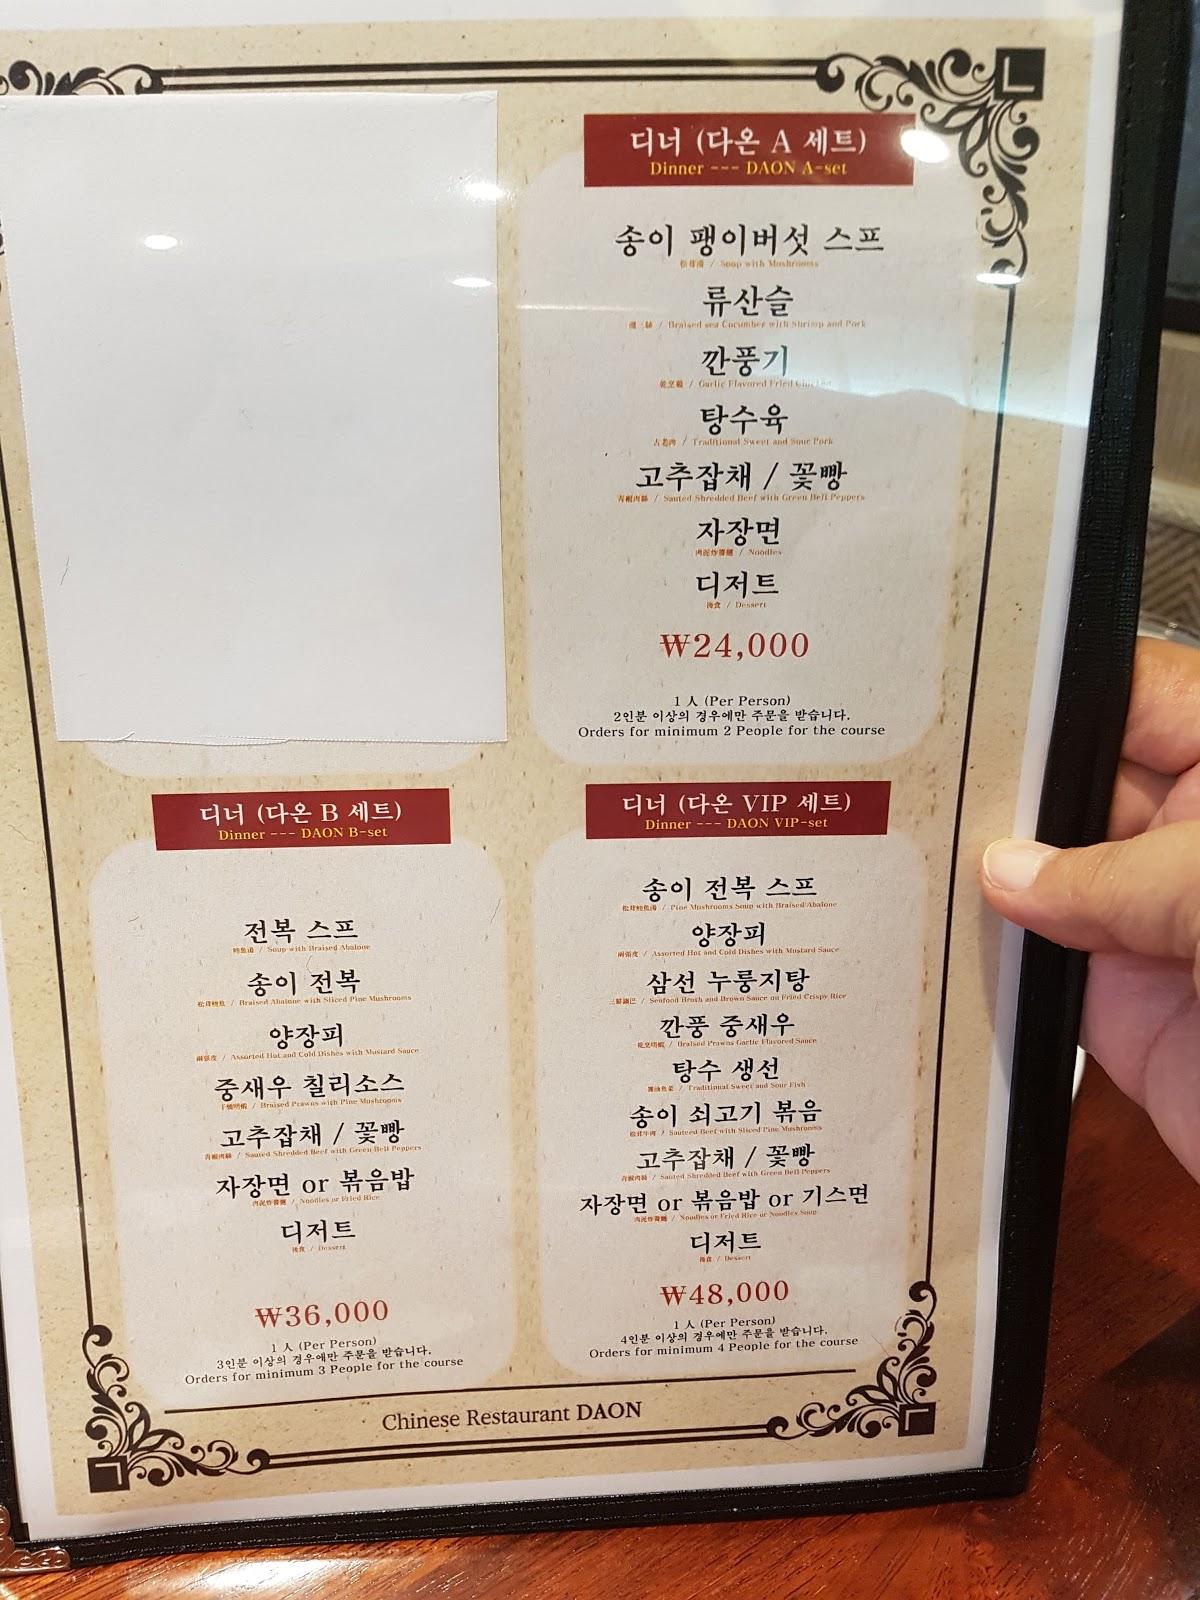 디너 (다온 A 세트)
Dinner --- DAON A-set
송이 팽이버섯 스프
松茸湯 / Soup with Mushrooms
류산슬
溜三絲 / Braised sea Cucumber with Shrimp and Pork
깐풍기
乾烹鷄 / Garlic Flavored Fried Chicken
탕수육
古老肉 / Traditional Sweet and Sour Pork
고추잡채 / 꽃빵
靑椒肉絲 / Sauted Shredded Beef with Green Bell Peppers
자장면
肉泥炸醬麵 / Noodles
디저트
後食 / Dessert
₩24,000
1人 (Per Person)
2인분 이상의 경우에만 주문을 받습니다.
Orders for minimum 2 People for the course
디너 (다온 B 세트)
Dinner --- DAON B-set
전복 스프
鮑魚湯 / Soup with Braised Abalone
송이 전복
松茸鮑魚 / Braised Abalone with Sliced Pine Mushrooms
양장피
兩張皮 / Assorted Hot and Cold Dishes with Mustard Sauce
중새우 칠리소스
干燒明蝦 / Braised Prawns with Pine Mushrooms
고추잡채 / 꽃빵
靑椒肉絲 / Sauted Shredded Beef with Green Bell Peppers
자장면 or 볶음밥
肉泥炸醬麵 / Noodles or Fried Rice
디저트
後食 / Dessert
₩36,000
1人 (Per Person)
3인분 이상의 경우에만 주문을 받습니다.
Orders for minimum 3 People for the course
디너 (다온 VIP 세트)
Dinner --- DAON VIP-set
송이 전복 스프
松茸鮑魚湯 / Pine Mushrooms Soup with Braised Abalone
양장피
兩張皮 / Assorted Hot and Cold Dishes with Mustard Sauce
삼선 누룽지탕
三鮮鍋巴 / Seafood Broth and Brown Sauce on Fried Crispy Rice
깐풍 중새우
乾烹明蝦 / Braised Prawns Garlic Flavored Sauce
탕수 생선
/ Traditional Sweet and Sour Fish
송이 쇠고기 볶음
松茸牛肉 / Sauteed Beef with Sliced Pine Mushrooms
고추잡채 / 꽃빵
靑椒肉絲 / Sauted Shredded Beef with Green Bell Peppers
자장면 or 볶음밥 or 기스면
肉泥炸醬麵 / Noodles or Fried Rice or Noodles Soup
디저트
後食 / Dessert
₩48,000
1人 (Per Person)
4인분 이상의 경우에만 주문을 받습니다.
Orders for minimum 4 People for the course
Chinese Restaurant DAON